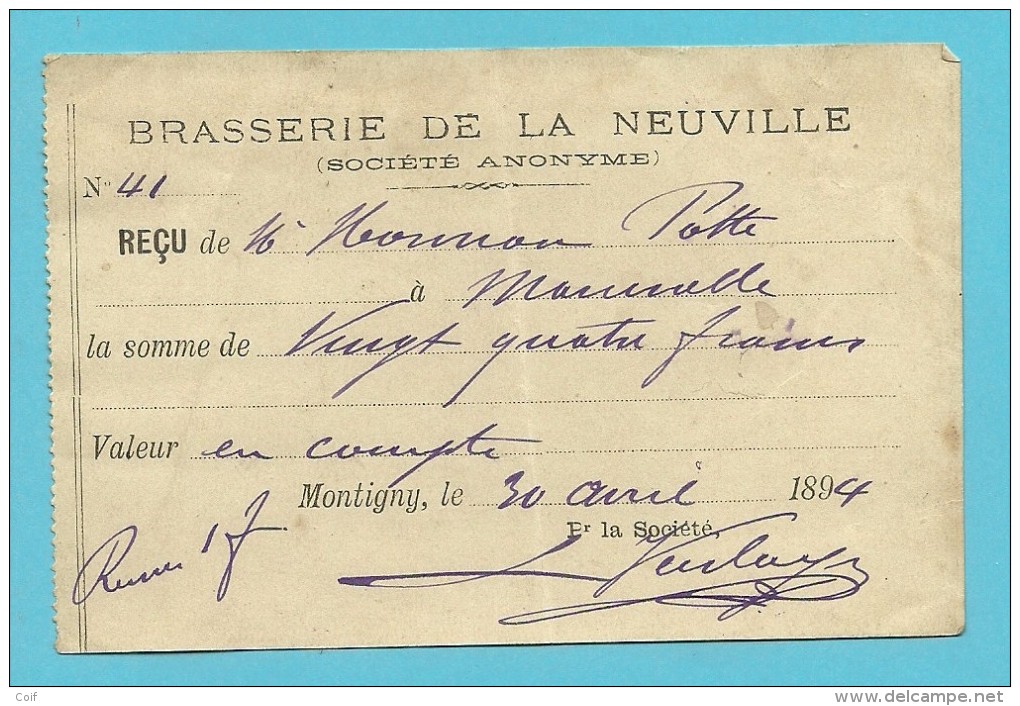 BRASSERIE DE LA NEUVILLE
(SOCIÉTÉ ANONYME)
N° 41
REÇU de Mr Potte
à Marcinelle
la somme de Vingt quatre francs
Valeur en compte
Montigny, le 30 avril 1894
Pr la Société,
1 f
Coif
delcampe.net